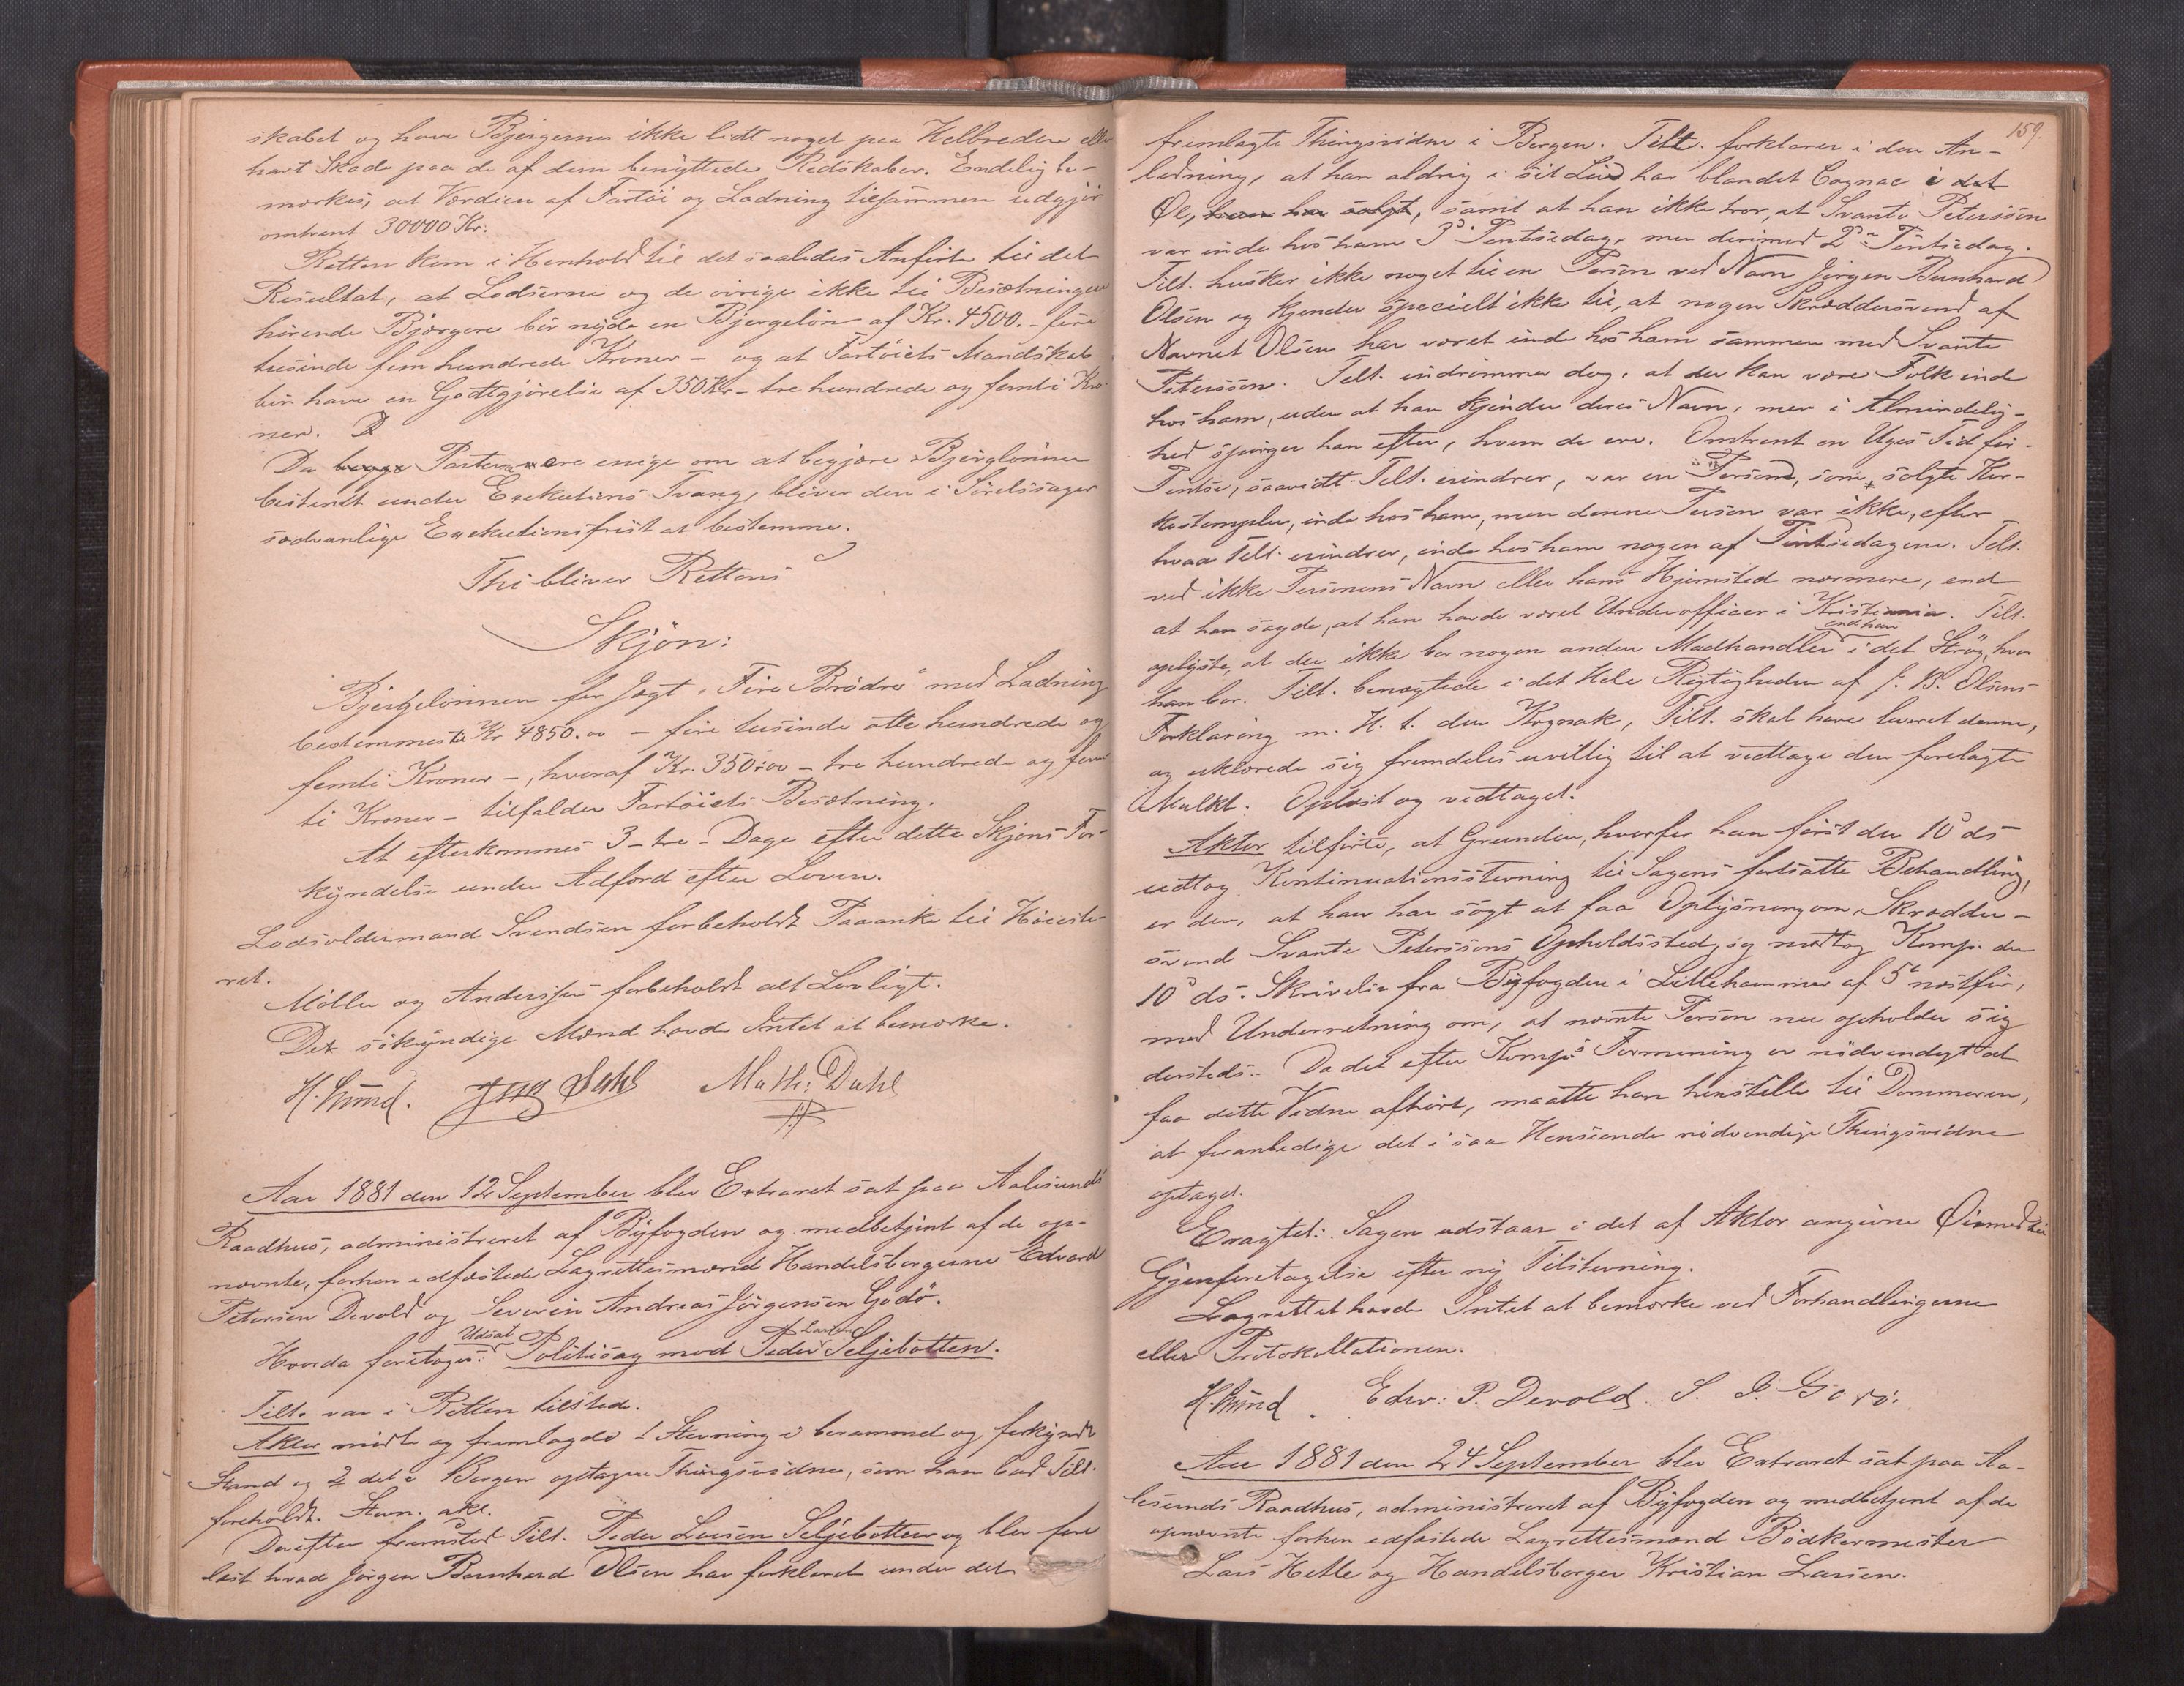 skabet og have Bjergerne ikke lidt noget paa Helbreden eller
havt Skade paa de af dem benyttede Redskaber. Endelig be-
mærkes, at Værdien af Fartöi og Ladning tilsammen udgjör
omtrent 30000 Kr.
Retten kom i Henhold til det saaledes Anförte til det
Resultat, at Lodserne og de övrige ikke til Besætningen
hörende Bjærgere bör nyde en Bjergelön af Kr. 4500. - fire
tusinde fem hundrede Kroner - og at Fartöiets Mandskab
bör have en Godtgjörelse af 350 Kr - tre hundrede og femti Kro-
ner. D
Da begge Parterne ere enige om at begjære Bjerglönnen
bestemt under Exekutions Tvang, bliver den i Sörelssager
sædvanlige Exekutionsfrist at bestemme.
Thi bliver Rettens
Skjön:
Bjergelönnen for Jagt "Fire Brödre" med Ladning
bestemmes til Kr 4850.00 - fire tusinde otte hundrede og
femti Kroner -, hvoraf Kr. 350:00 - tre hundrede og fem
ti Kroner - tilfalder Fartöiets Besætning.
At efterkommes 3 - tre - Dage efter dette Skjöns For-
kyndelse under Adfærd efter Loven.
Lodsoldermand Svendsen forbeholdt Paaanke til Höieste-
ret.
Möller og Anderssen forbeholdt alt Lovligt.
De sökyndige Mænd havde Intet at bemærke.
H. Lund. Dahl Math: Dahl
Aar 1881 den 12 September blev Extraret sat paa Aalesunds
Raadhus, administreret af Byfogden og medbetjent af de op-
nævnte, forhen edfæstede Lagrettesmænd Handelsborgerne Edvard
Petersen Devold og Severin Andreas Jörgensen Godö.
Hvorda foretoges: Udsat Politisag mod Peder Larsen Seljebotten.
Tilt. var i Retten tilstede.
Aktor mödte og fremlagde 1 Stevning i berammed og forkyndt
Stand og 2 det i Bergen optagne Thingsvidne, som han bad Tilt.
foreholdt. Stevn. akt.
Derefter fremsted Tilt. Peder Larsen Seljebotten og blev fore
læst hvad Jörgen Bernhard Olsen har forklaret under det
159.
fremlagte Thingsvidne i Bergen. Tilt. forklarer i den An-
ledning, at han aldrig i sit Liv har blandet Cognac i det
Öl, han har solgt, samt at han ikke tror, at Svante Peterssön
var inde hos ham 3die Pentsedag, men derimod 2den Pintsedag.
Tilt. husker ikke noget til en Person ved Navn Jörgen Bernhard
Olsen og kjender specielt ikke til, at nogen Skræddersvend af
Navnet Olsen har været inde hos ham sammen med Svante
Peterssön. Tilt. indrömmer dog, at der kan være Folk inde
hos ham, uden at han kjender deres Navn, men i Almindelig-
hed spörger han efter, hvem de ere. Omtrent en Uges Tid för
Pintse, saavidt Tilt. erindrer, var en Person, som solgte Kor-
kestempler, inde hos ham, men denne Person var ikke, efter
hvad Tilt. erindrer, inde hos ham nogen af Pintsedagene. Tilt.
ved ikke Personens Navn eller hans Hjemsted nærmere, end
at han sagde, at han havde været Underofficer i Kristiania. Tilt.
oplyste, at der ikke bor nogen anden Madhandler end han i det Strög, hvor
han bor. Tilt. benægtede i det Hele Rigtigheden af J. B. Olsens
Forklaring m. H. t. den Kognak, Tilt. skal have leveret denne,
og erklærede sig fremdeles uvillig til at vedtage den forelagte
Mulkt. Oplæst og vedtaget.
Aktor tilförte, at Grunden, hvorfor han först den 10de ds
udtog Kontinuationsstevning til Sagens fortsatte Behandling,
er den, at han har sögt at faa Oplysning om Skrædder-
svend Svante Peterssöns Opholdssted, og modtog Komp. den
10de ds. Skrivelse fra Byfogden i Lillehammer af 5te næstför,
med Underretning om, at nævnte Person nu opholder sig
dersteds. Da det efter Komp's Formening er nödvendigt at
faa dette Vidne afhört, maatte han henstille til Dommeren,
at foranledige det i saa Henseende nödvendige Thingsvidne
optaget.
Eragtet: Sagen udstaar i det af Aktor angivne Öiemed til
Gjenforetagelse efter ny Tilstevning.
Lagrettet havde Intet at bemærke ved Forhandlingerne
eller Protokollationen.
H. Lund. Edv: P. Devold S. J. Godö.
Aar 1881 den 24 September blev Extraret sat paa Aa-
lesunds Raadhus, administreret af Byfogden og medbetjent af de
opnævnte forhen edfæstede Lagrettesmænd Bödkermester
Lars Helle og Handelsborger Kristian Larsen.